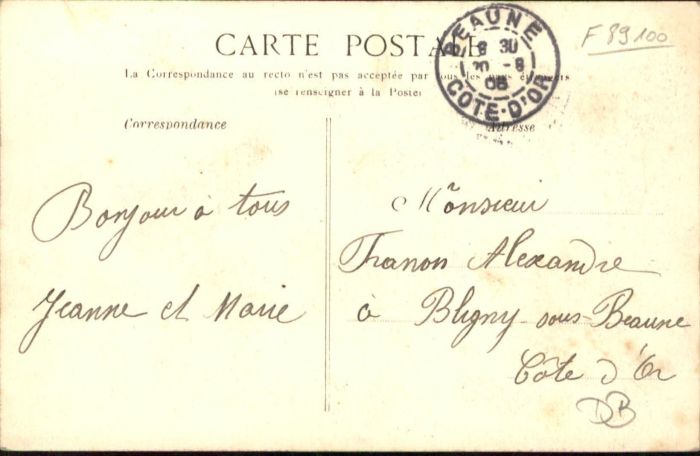 CARTE POSTALE
La Correspondance au recto n'est pas acceptée par tous les pays étrangers
(se renseigner à la Poste)
BEAUNE
8 30
20 -8
06
COTE-D'OR
F 89100
Correspondance
Adresse
Bonjour à tous
Jeanne et Marie
Monsieur
Franon Alexandre
à Bligny-sous-Beaune
Côte d'Or
DB